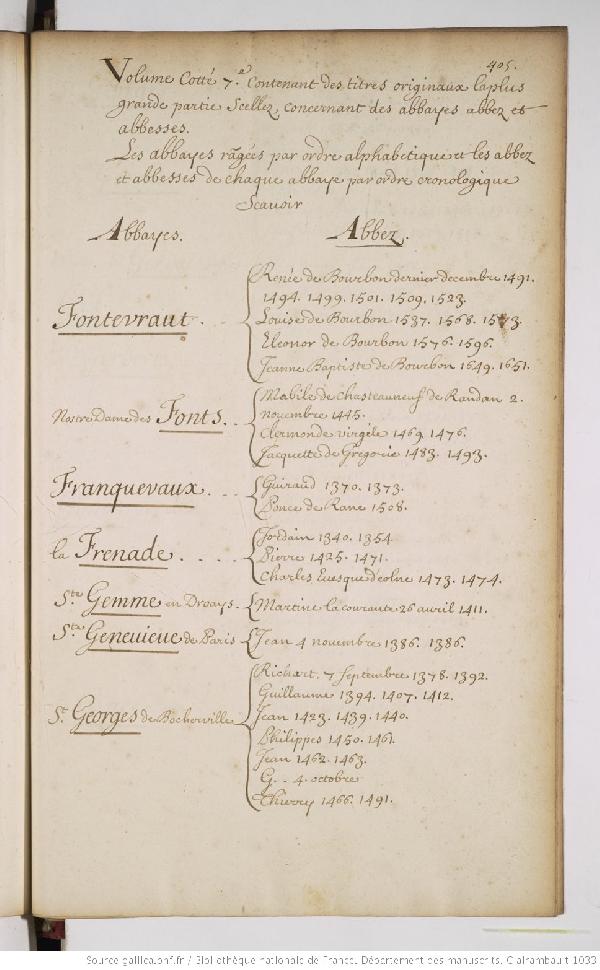 405.
Volume Cotté 7.e Contenant des titres originaux la plus
grande partie Scellez, concernant des abbayes abbez et
abbesses.
Les abbayes ragées par ordre alphabetique et les abbez
et abbesses de chaque abbaye par ordre cronologique
Scavoir
Abbayes. Abbez.
Renée de Bourbon dernier decembre 1491.
1494. 1499. 1501. 1509. 1523.
Fontevraut. Louise de Bourbon 1537. 1568. 1573.
Eleonor de Bourbon 1576. 1596.
Jeanne Baptiste de Bourbon 1649. 1651.
Mabile de Chasteauneuf de Randan 2.
Nostre Dame des Fonts. novembre 1445.
Clermonde virgile 1469. 1476.
Jacquette de Gregorie 1483. 1493.
Franquevaux. Guiraud 1370. 1373.
Ponce de Rane 1508.
Jordain 1340. 1354.
la Frenade. Pierre 1425. 1471.
Charles Evesque d'eolne 1473. 1474.
Ste Gemme en Droays. Martine la courante 26 avril 1411.
Ste Genevieve de Paris Jean 4 novembre 1386. 1386.
Richart. 7 Septembre 1378. 1392.
Guillaume 1394. 1407. 1412.
St Georges de Bocherville Jean 1423. 1439. 1440.
Philippes 1450. 1461.
Jean 1462. 1463.
G.. 4. octobre
Thierry 1466. 1491.
Source gallica.bnf.fr / Bibliothèque nationale de France. Département des manuscrits. Clairambault 1033